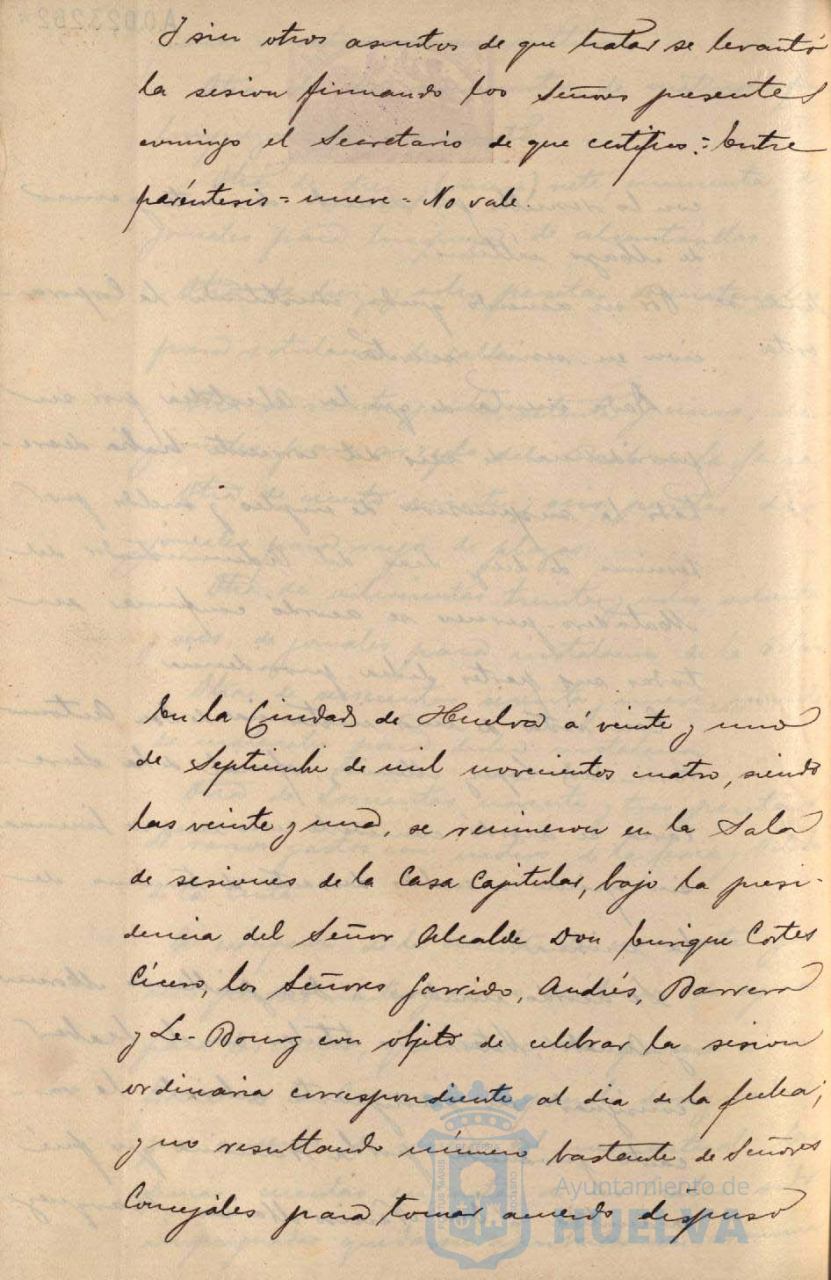 Y sin otros asuntos de que tratar se levantó
la sesion firmando los Señores presentes
conmigo el Secretario de que certifico = Entre
paréntesis = nueve = No vale.
En la Ciudad de Huelva á veinte y uno
de Septiembre de mil novecientos cuatro, siendo
las veinte y una, se reunieron en la Sala
de sesiones de la Casa Capitular, bajo la presi-
dencia del Señor Alcalde Don Enrique Cortes
Cícero, los Señores Garrido, Andrés, Barrera
y Le-Bourg con objeto de celebrar la sesion
ordinaria correspondiente al dia de la fecha;
y no resultando número bastante de Señores
Concejáles para tomar acuerdo dispuso
Ayuntamiento de
HUELVA